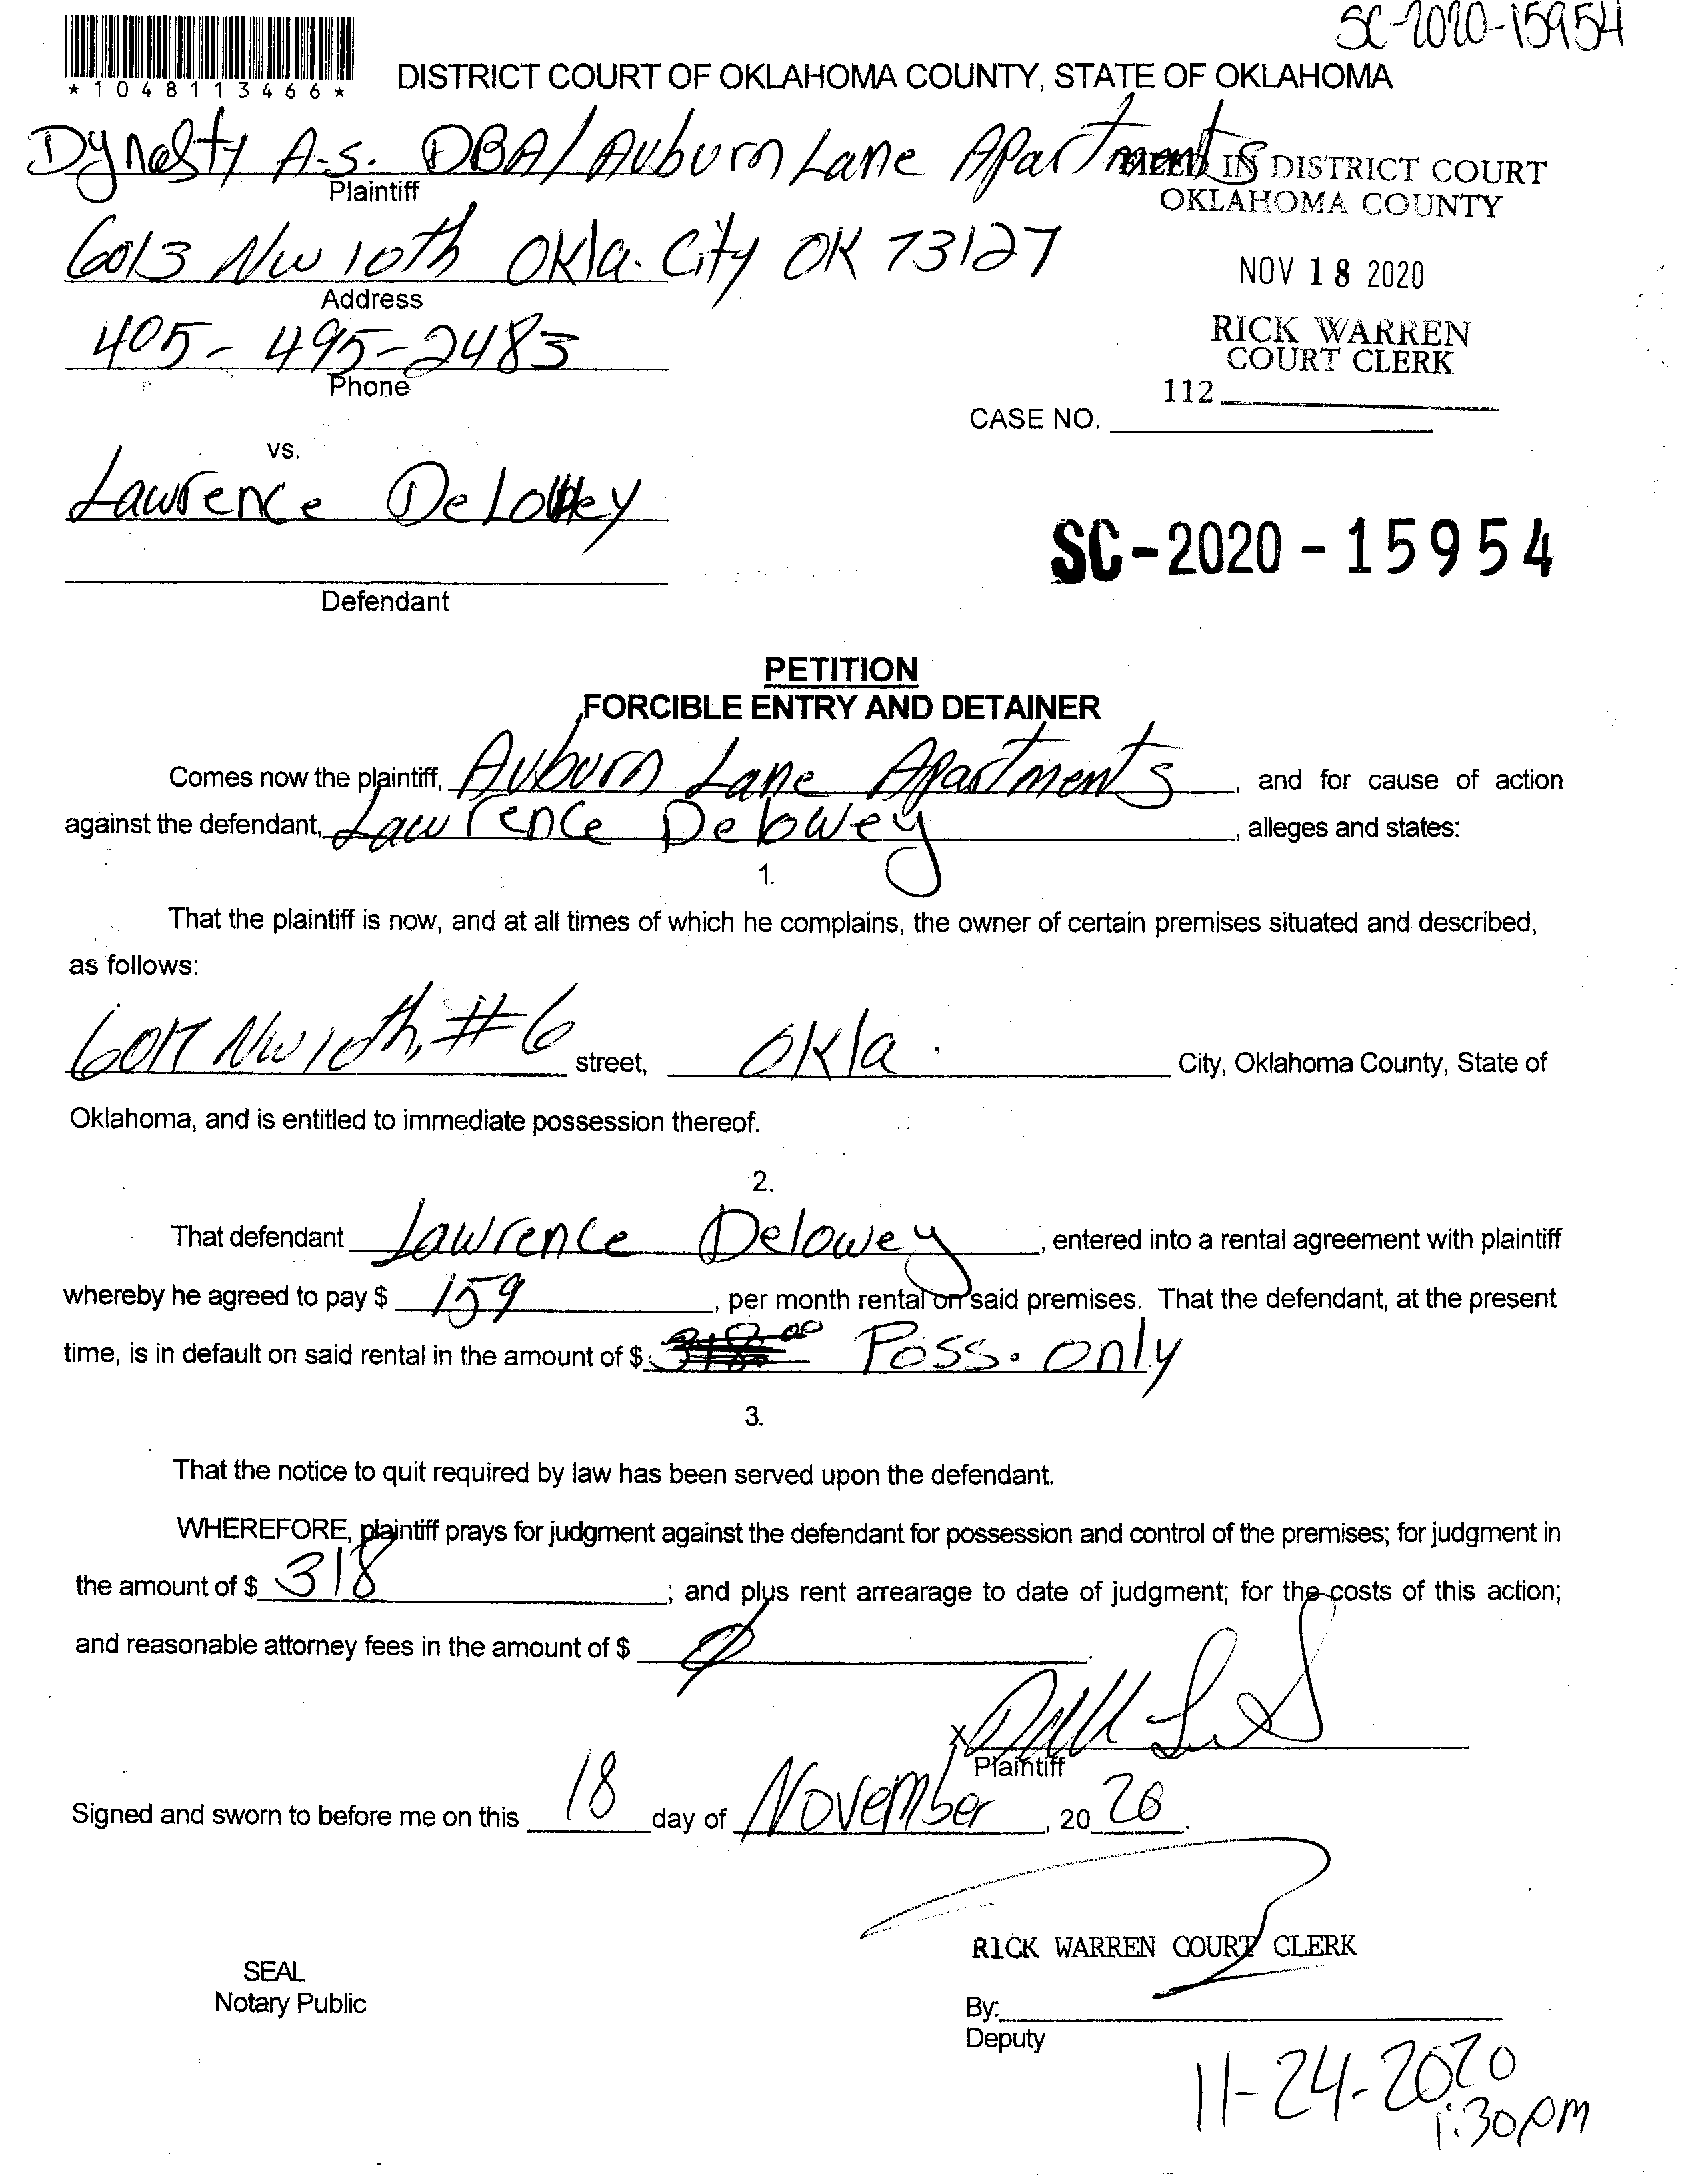 SC-2020-15954
*1048113466*
DISTRICT COURT OF OKLAHOMA COUNTY, STATE OF OKLAHOMA
Dynasty A.S. DBA/Auburn Lane Apartments
Plaintiff
IN DISTRICT COURT
OKLAHOMA COUNTY
6013 NW 10th Okla. City OK 73127
Address
NOV 18 2020
405-495-2483
Phone
RICK WARREN
COURT CLERK
112
CASE NO.
vs.
Lawrence
SC-2020-15954
Defendant
PETITION
FORCIBLE ENTRY AND DETAINER
Comes now the plaintiff, Auburn Lane Apartments, and for cause of action
against the defendant, Lawrence Delowey, alleges and states:
1.
That the plaintiff is now, and at all times of which he complains, the owner of certain premises situated and described,
as follows:
6017 NW 10th, #6 street, Okla. City, Oklahoma County, State of
Oklahoma, and is entitled to immediate possession thereof.
2.
That defendant Lawrence Delowey, entered into a rental agreement with plaintiff
whereby he agreed to pay $ 159, per month rental on said premises. That the defendant, at the present
time, is in default on said rental in the amount of $ 318.00 Poss. only
3.
That the notice to quit required by law has been served upon the defendant.
WHEREFORE, plaintiff prays for judgment against the defendant for possession and control of the premises; for judgment in
the amount of $ 318; and plus rent arrearage to date of judgment; for the costs of this action;
and reasonable attorney fees in the amount of $ Ø.
X
Plaintiff
Signed and sworn to before me on this 18 day of November, 20 20.
RICK WARREN COURT CLERK
SEAL
Notary Public
By:
Deputy
11-24-2020
1:30pm